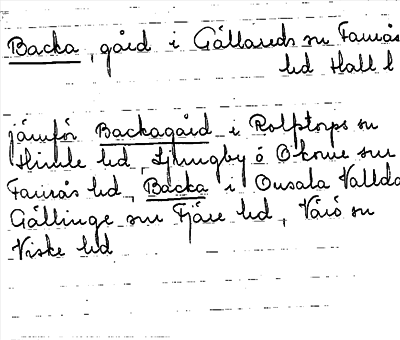 Backa, gård i Gällareds sn Faurås
hd Hall l
jämför Backagård i Rolfstorps sn
Himle hd, Ljungby o Okome sn
Faurås hd, Backa i Onsala Vallda
Gällinge sn Fjäre hd, Värö sn
Viske hd